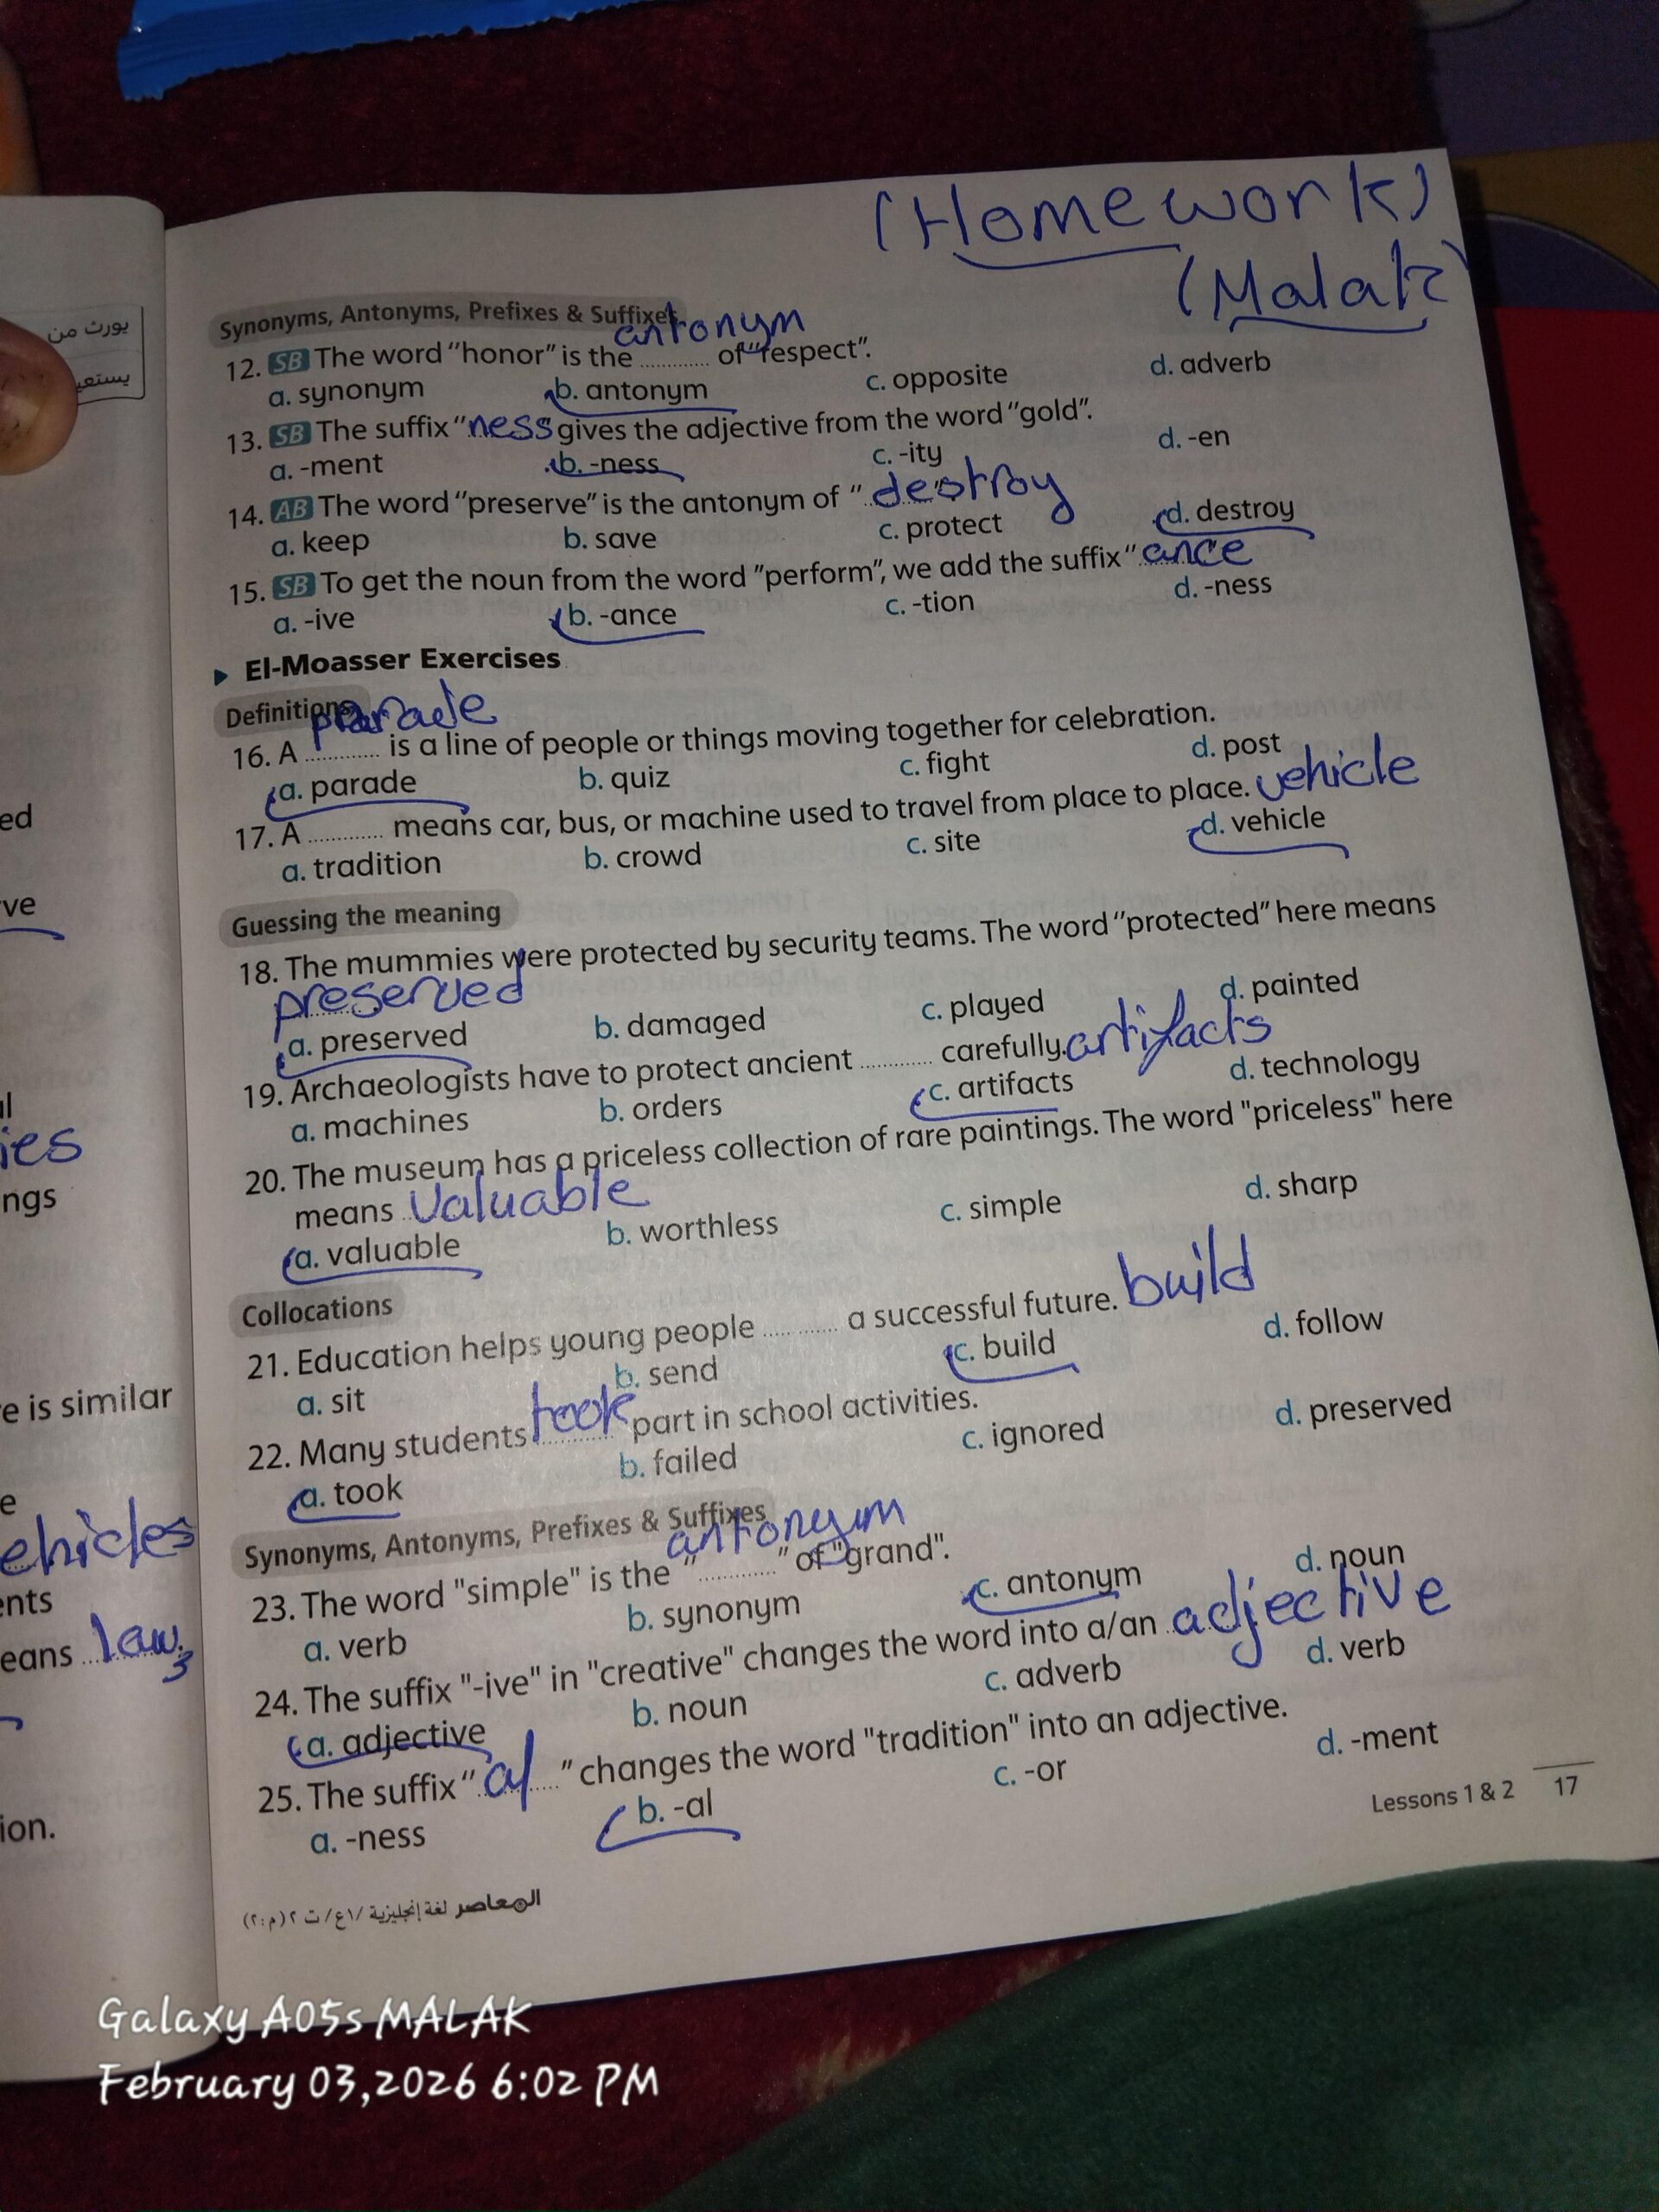 (Homework)
(Malak)
يورث من
يستعي
Synonyms, Antonyms, Prefixes & Suffixes
antonym
12. SB The word "honor" is the ............ of "respect".
a. synonym b. antonym c. opposite d. adverb
13. SB The suffix "ness" gives the adjective from the word "gold".
a. -ment b. -ness c. -ity d. -en
14. AB The word "preserve" is the antonym of "destroy
a. keep b. save c. protect d. destroy
15. SB To get the noun from the word "perform", we add the suffix "ance
a. -ive b. -ance c. -tion d. -ness
El-Moasser Exercises
Definitions
parade
16. A ............ is a line of people or things moving together for celebration.
a. parade b. quiz c. fight d. post
17. A ............ means car, bus, or machine used to travel from place to place. vehicle
a. tradition b. crowd c. site d. vehicle
Guessing the meaning
18. The mummies were protected by security teams. The word "protected" here means
preserved
a. preserved b. damaged c. played d. painted
19. Archaeologists have to protect ancient ............ carefully. artifacts
a. machines b. orders c. artifacts d. technology
20. The museum has a priceless collection of rare paintings. The word "priceless" here
means valuable
a. valuable b. worthless c. simple d. sharp
Collocations
21. Education helps young people ............ a successful future. build
a. sit b. send c. build d. follow
22. Many students took part in school activities.
a. took b. failed c. ignored d. preserved
Synonyms, Antonyms, Prefixes & Suffixes
antonym
23. The word "simple" is the "............" of "grand".
a. verb b. synonym c. antonym d. noun
24. The suffix "-ive" in "creative" changes the word into a/an adjective
a. adjective b. noun c. adverb d. verb
25. The suffix "al" changes the word "tradition" into an adjective.
a. -ness b. -al c. -or d. -ment
Lessons 1 & 2 17
المعاصر لغة إنجليزية /١ع/ ت ٢ (م:٢)
ed
ve
ies
ngs
e is similar
e
ehicles
ents
eans law
ion.
Galaxy A05s MALAK
February 03,2026 6:02 PM